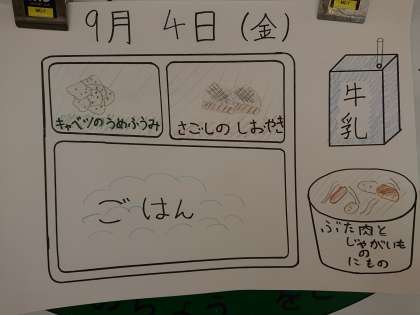 9月 4日(金)
キャベツのうめふうみ
さごしの しおやき
牛
乳
ごはん
ぶた肉と
じゃがいも
の
にもの